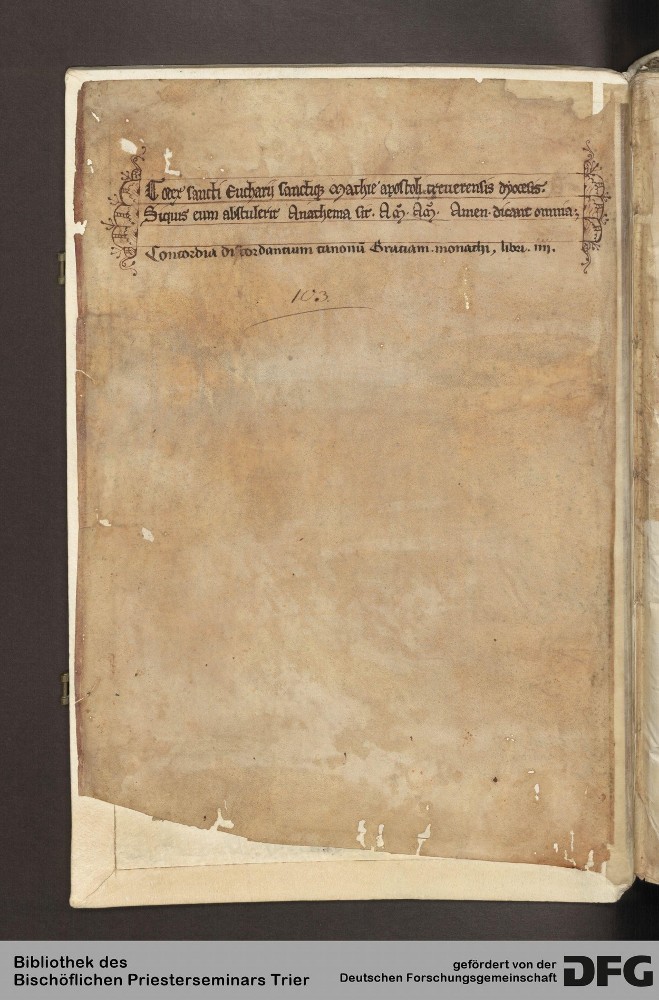 Codex sancti Eucharii sanctiqꝫ Mathie apostoli. treuerensis dyocesis.
Siquis eum abstulerit Anathema sit. Am̄. Am̄. Amen. dicant omnia.
Concordia discordantium canonū Gratiani. monachi, libri. iiii.
103.
Bibliothek des
Bischöflichen Priesterseminars Trier
gefördert von der
Deutschen Forschungsgemeinschaft
DFG